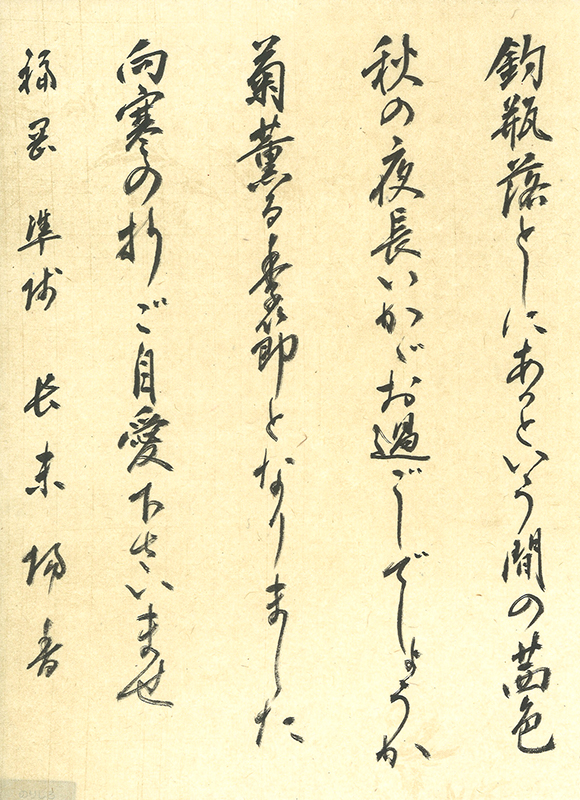 釣瓶落としにあっという間の茜色
秋の夜長いかがお過ごしでしょうか
菊薫る季節となりました
向寒の折ご自愛下さいませ
福岡 準師 長末 陽香